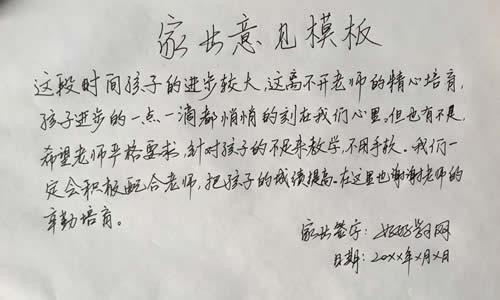 家长意见模板
这段时间孩子的进步较大,这离不开老师的精心培育,
孩子进步的一点一滴都悄悄的刻在我们心里。但也有不足,
希望老师严格要求,针对孩子的不足来教学,不用手软。我们一
定会积极配合老师,把孩子的成绩提高。在这里也谢谢老师的
辛勤培育。
家长签字:好好学习网
日期:20xx年x月x日